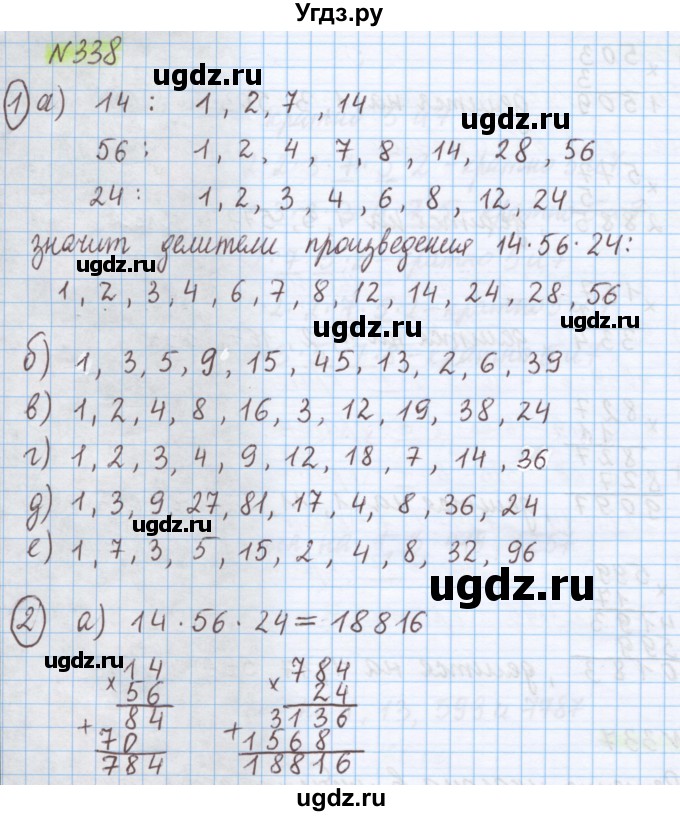 Угдз.ру
№338
1) а) 14 : 1, 2, 7, 14
56 : 1, 2, 4, 7, 8, 14, 28, 56
24 : 1, 2, 3, 4, 6, 8, 12, 24
значит делители произведения 14·56·24:
1, 2, 3, 4, 6, 7, 8, 12, 14, 24, 28, 56
б) 1, 3, 5, 9, 15, 45, 13, 2, 6, 39
в) 1, 2, 4, 8, 16, 3, 12, 19, 38, 24
г) 1, 2, 3, 4, 9, 12, 18, 7, 14, 36
д) 1, 3, 9, 27, 81, 17, 4, 8, 36, 24
е) 1, 7, 3, 5, 15, 2, 4, 8, 32, 96
2) а) 14·56·24 = 18816
14
× 56
84
+ 70
784
784
× 24
3136
+ 1568
18816
ugdz.ru
ugdz.ru
ugdz.ru
ugdz.ru
ugdz.ru
ugdz.ru
ugdz.ru
ugdz.ru
ugdz.ru
ugdz.ru
ugdz.ru